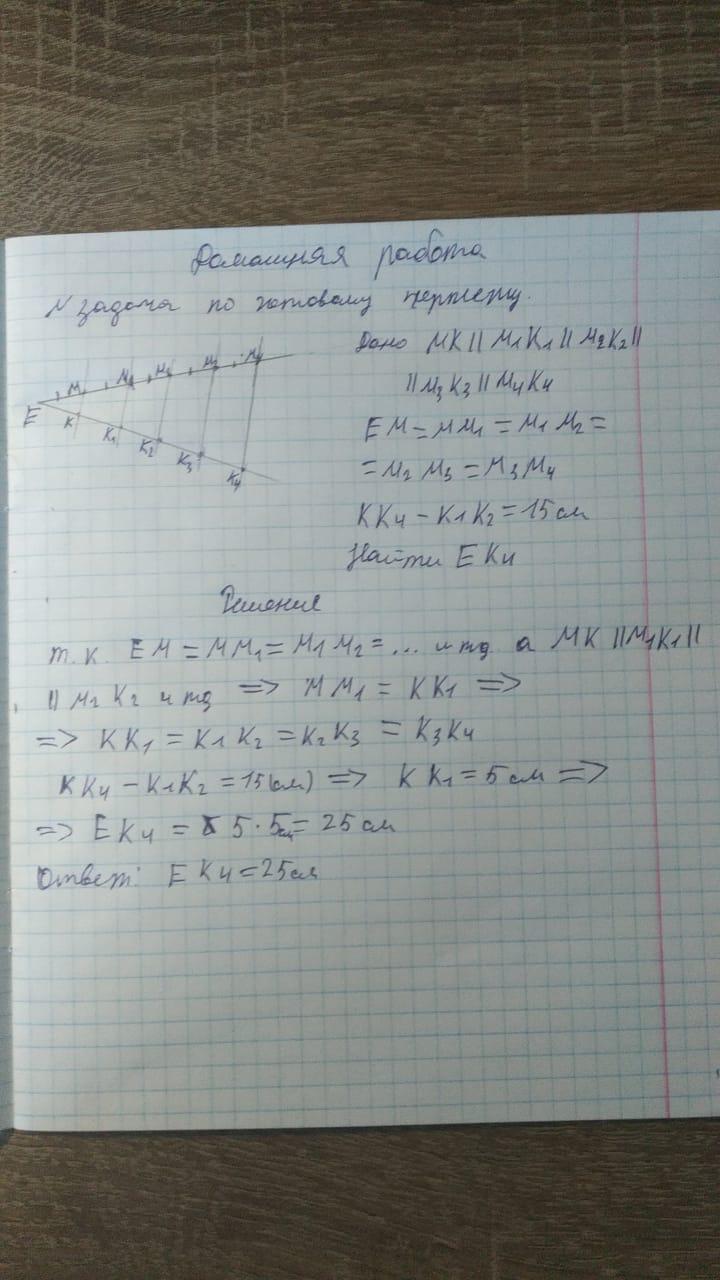 Домашняя работа
N задача по готовому чертежу.
Дано MK || M1K1 || M2K2 ||
|| M3K3 || M4K4
EM = MM1 = M1M2 =
= M2M3 = M3M4
KK4 - K1K2 = 15 см
Найти EK4
M M1 M2 M3 M4
E K K1 K2 K3 K4
Решение
т.к. EM = MM1 = M1M2 = ... и тд а MK || M1K1 ||
|| M2K2 и тд => MM1 = KK1 =>
=> KK1 = K1K2 = K2K3 = K3K4
KK4 - K1K2 = 15(см) => KK1 = 5 см =>
=> EK4 = 5 · 5см = 25 см
Ответ: EK4 = 25 см